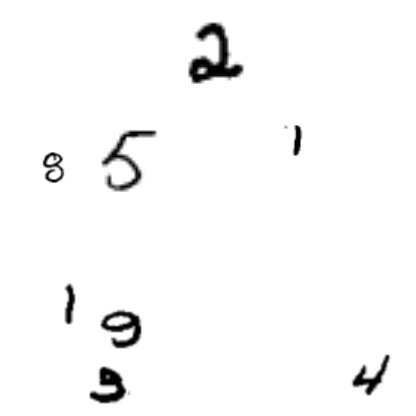 2
8 5 1
1 9
3 4